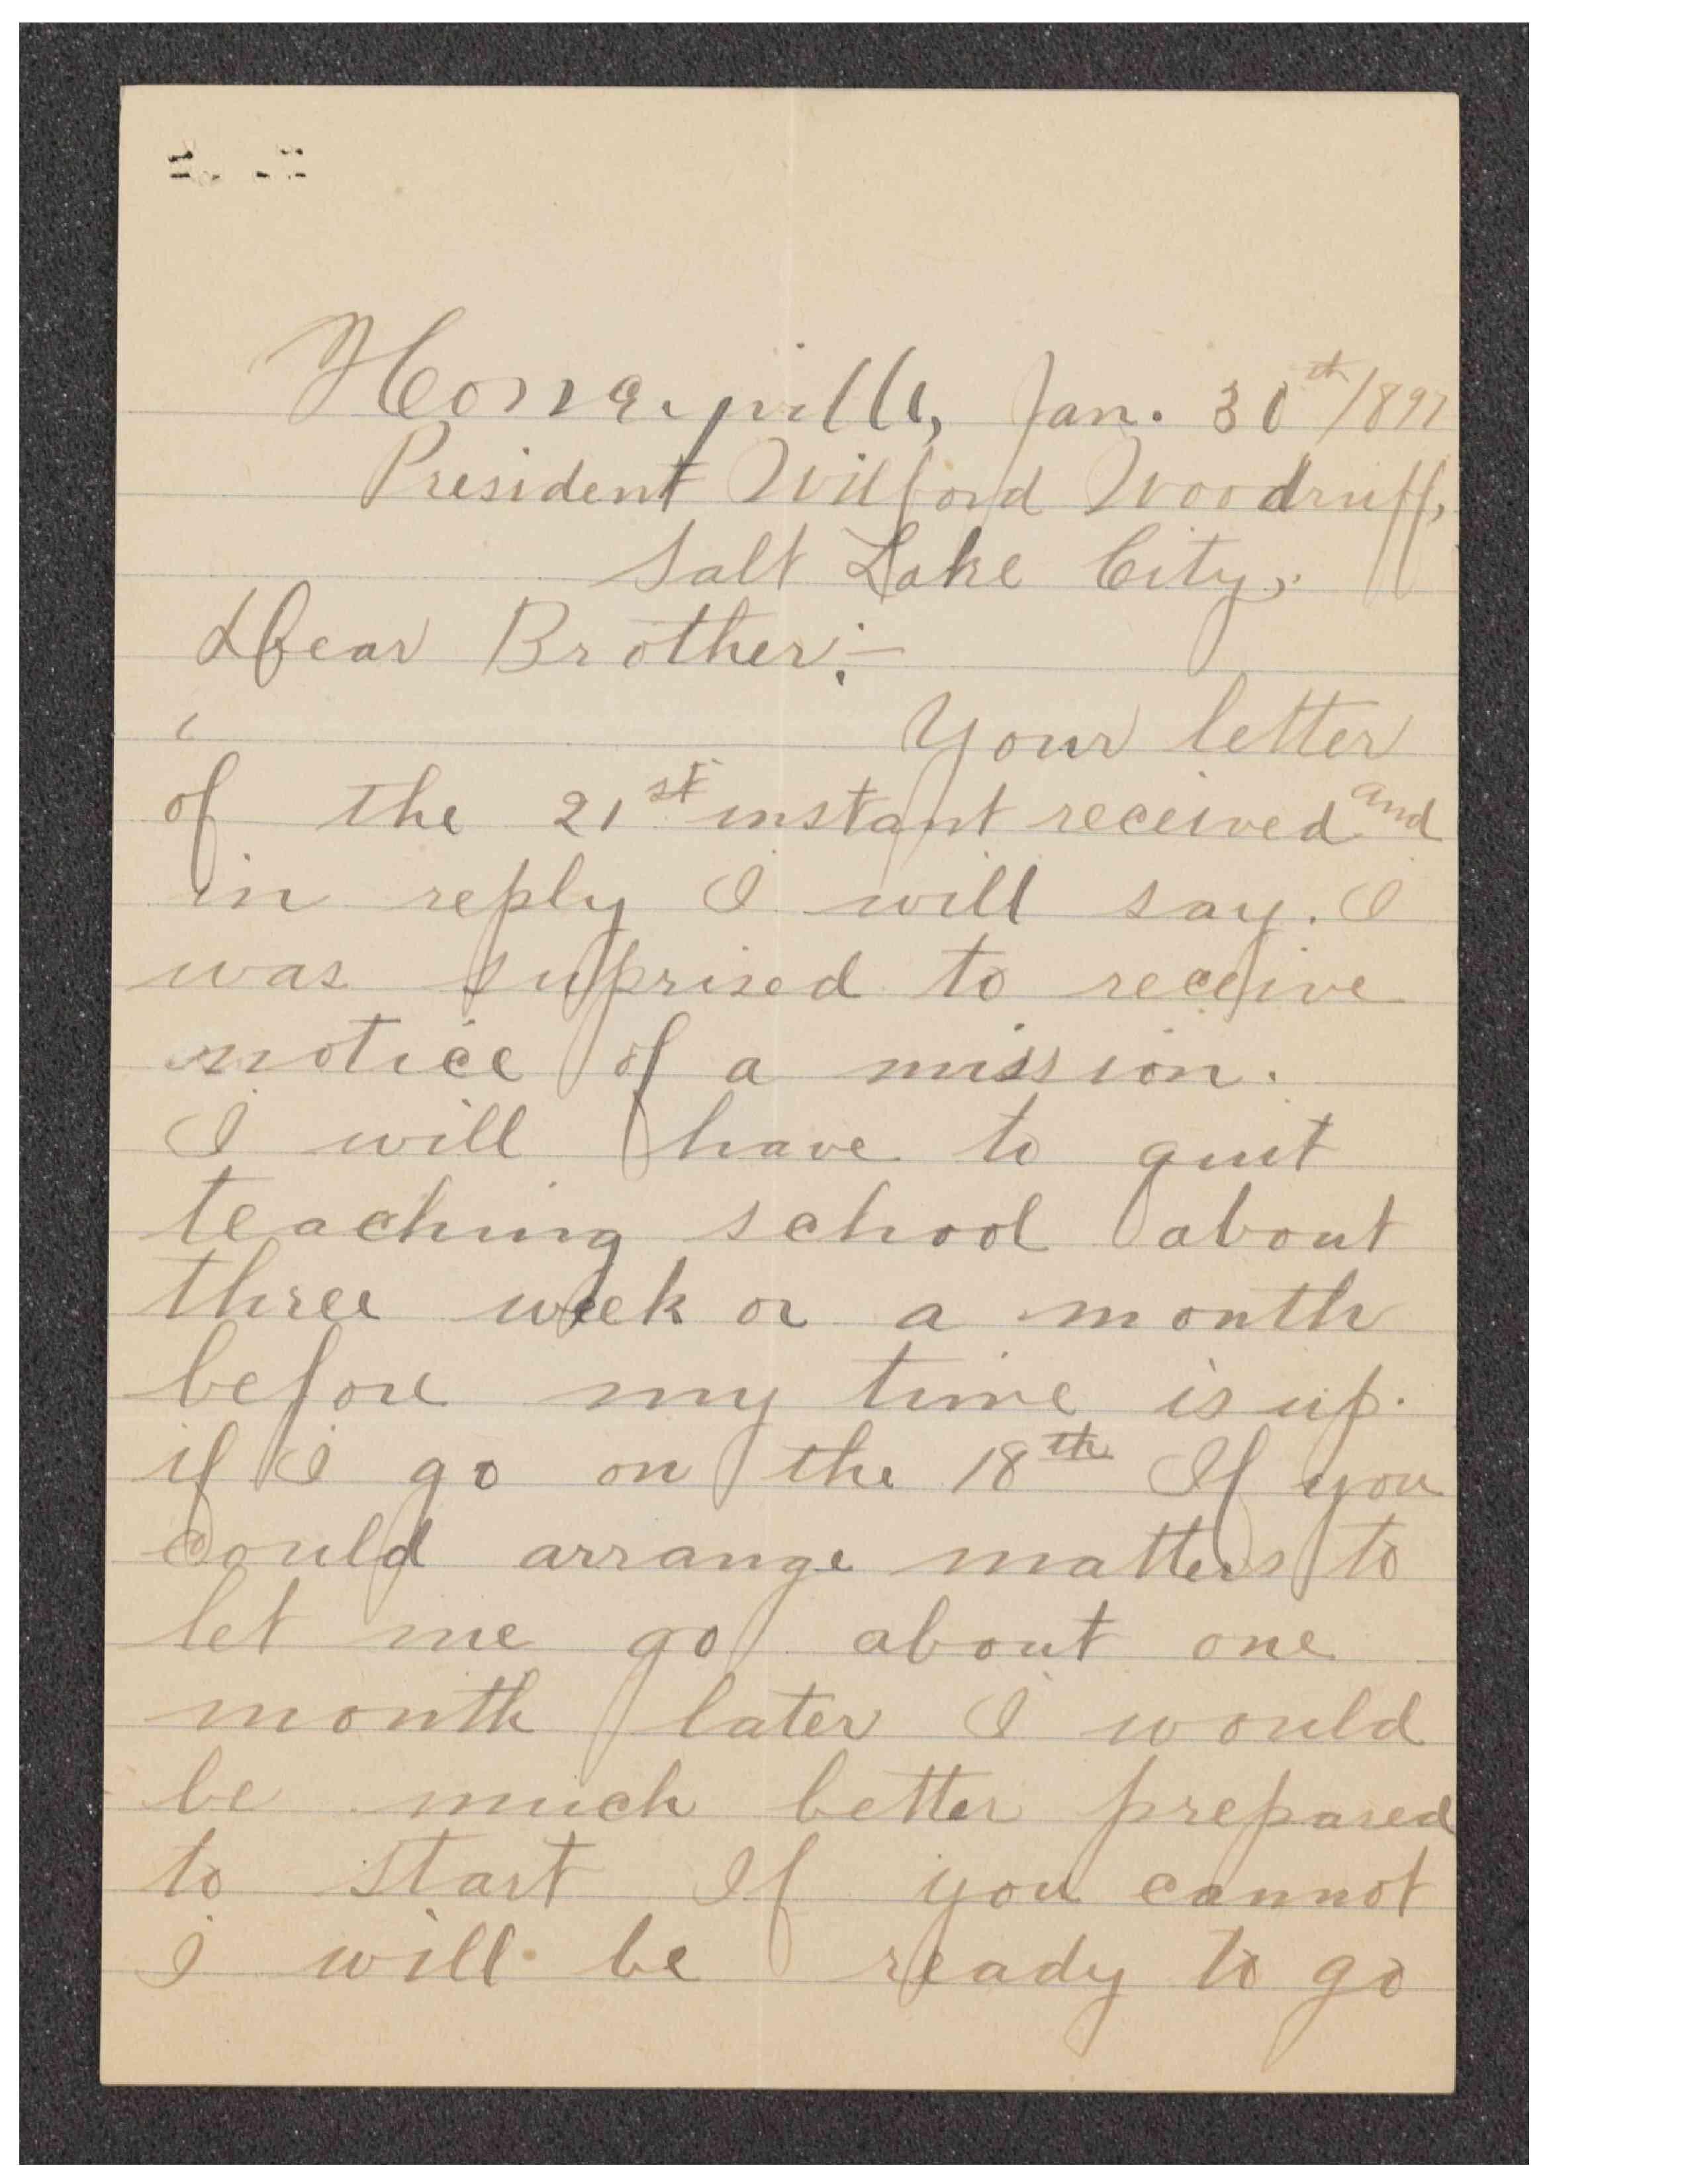 Honeyville, Jan. 30th/1897
President Wilford Woodruff,
Salt Lake City,
Dear Brother:—
Your letter
of the 21st instant received and
in reply I will say. I
was suprised to receive
notice of a mission.
I will have to quit
teaching school about
three week or a month
before my time is up.
if I go on the 18th If you
could arrange matters to
let me go about one
month later I would
be much better prepared
to start If you cannot
I will be ready to go